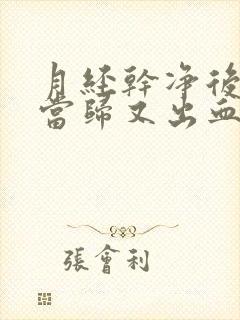 月經幹净後
當歸又出血
張會利